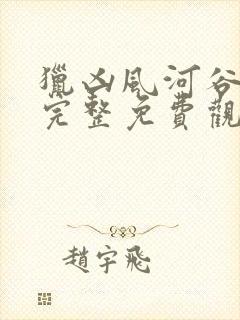 獵凶風河谷
完整免費觀
趙宇飛